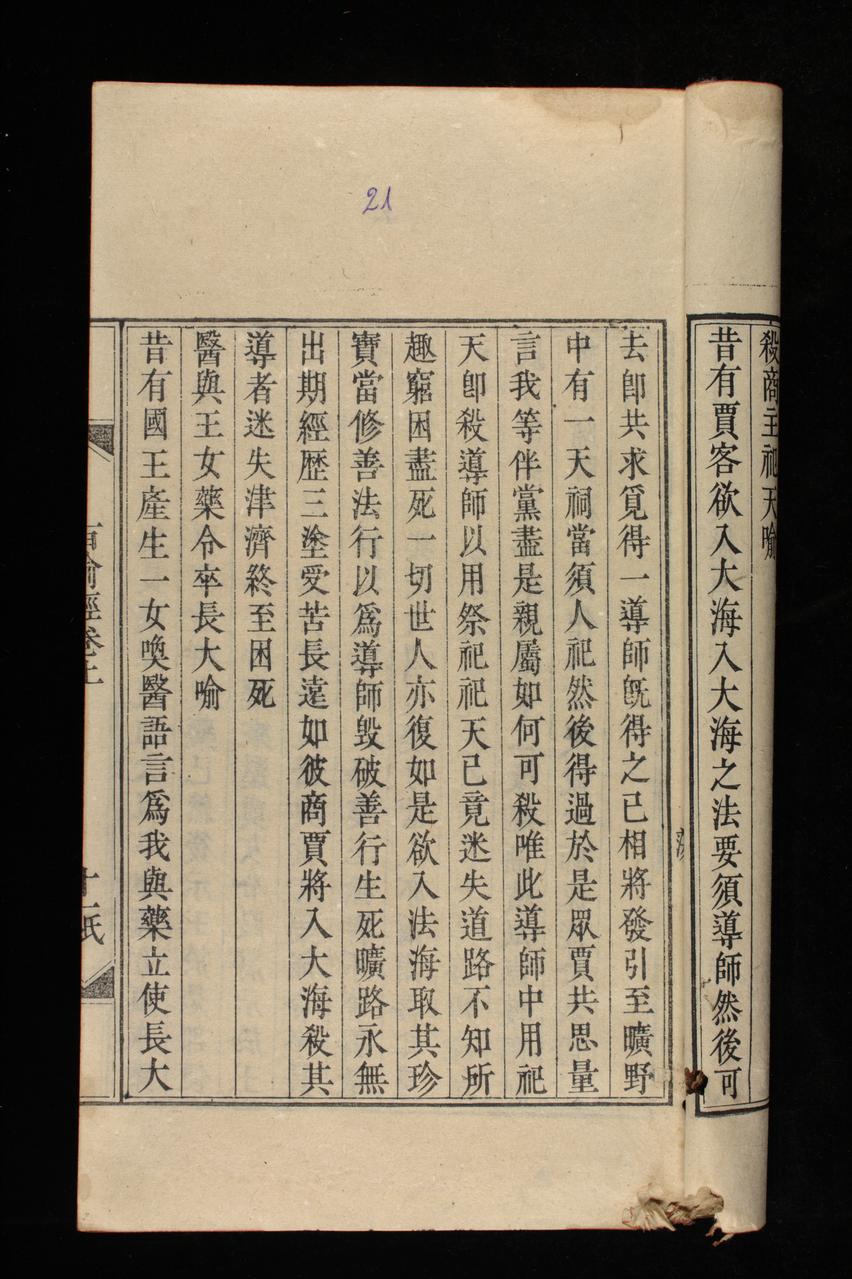 殺商主祀天喻
昔有賈客欲入大海入大海之法要須導師然後可
去卽共求覓得一導師旣得之已相將發引至曠野
中有一天祠當須人祀然後得過於是眾賈共思量
言我等伴黨盡是親屬如何可殺唯此導師中用祀
天卽殺導師以用祭祀祀天已竟迷失道路不知所
趣窮困盡死一切世人亦復如是欲入法海取其珍
寶當修善法行以爲導師毀破善行生死曠路永無
出期經歷三塗受苦長遠如彼商賈將入大海殺其
導者迷失津濟終至困死
醫與王女藥令卒長大喻
昔有國王產生一女喚醫語言爲我與藥立使長大
百喻經卷上
十一紙
21